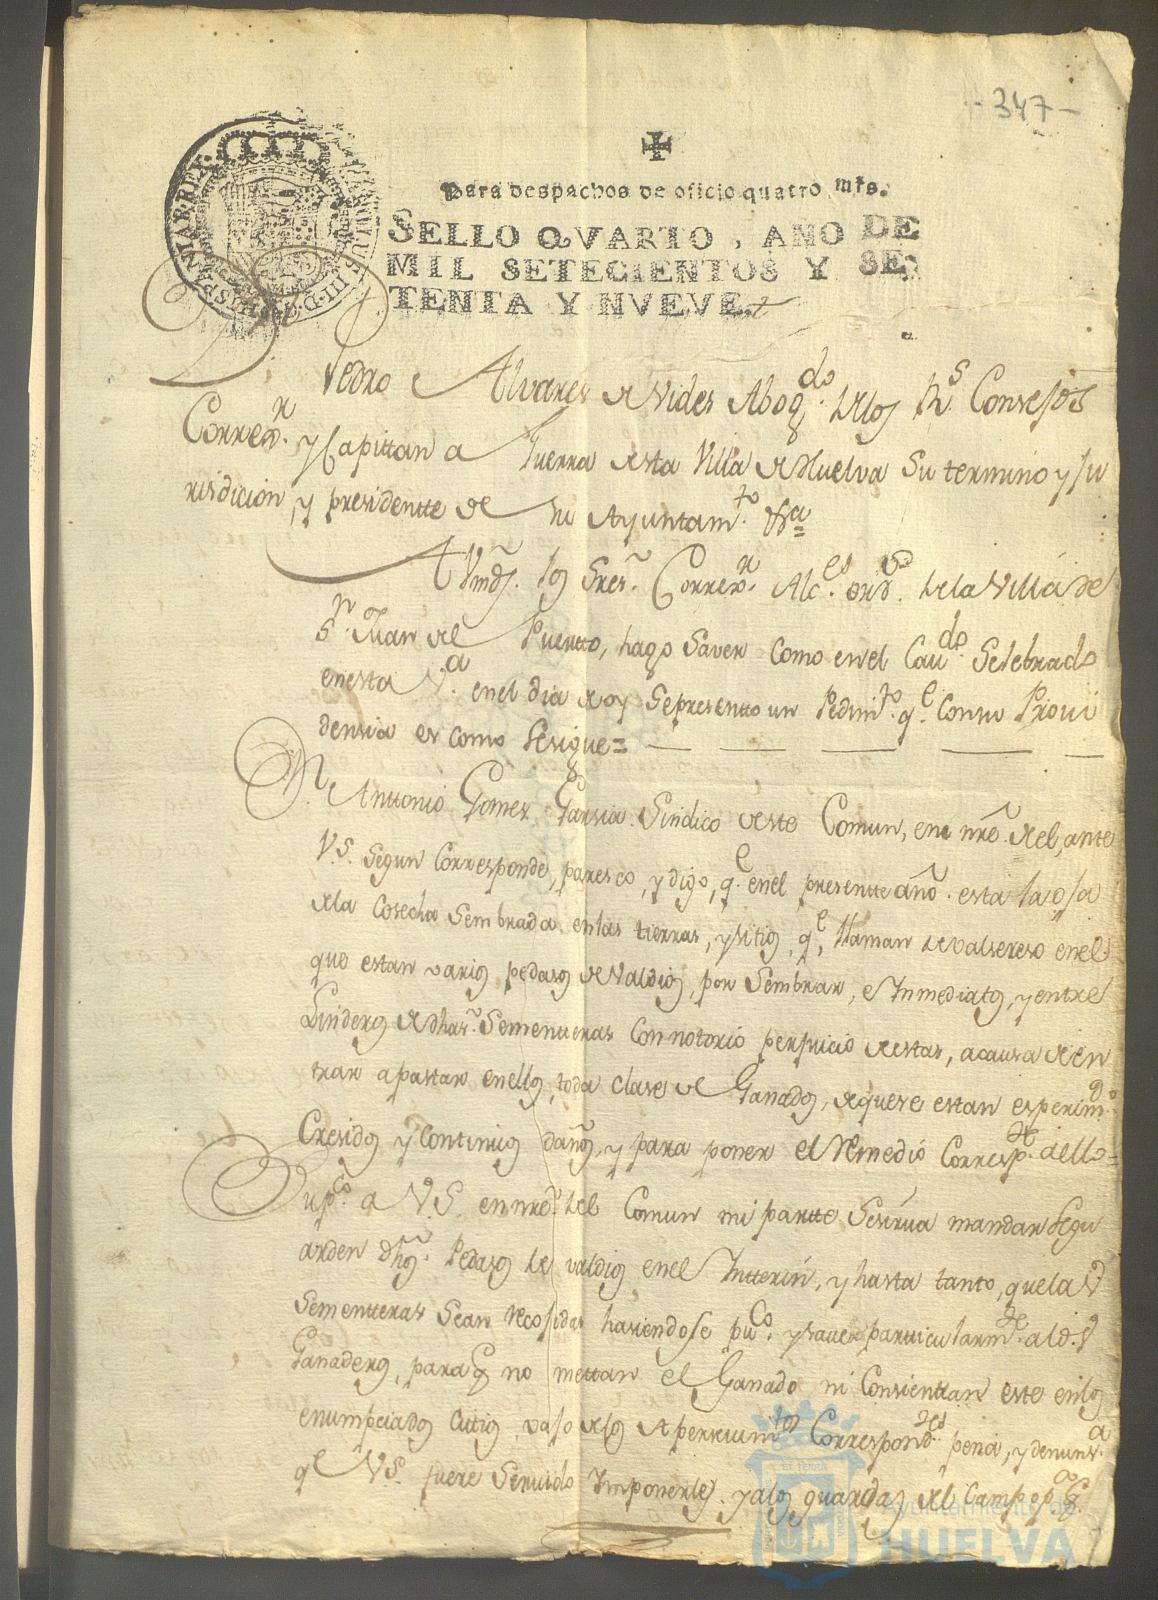 -347-
Para despachos de oficio quatro mrs.
SELLO QVARTO, AÑO DE
MIL SETECIENTOS Y SE-
TENTA Y NVEVE.
Dn Pedro Alvarez de Vides Abogdo. de los Rs. Consejos
Correxr. y Capittan a Guerra de esta Villa de Huelva su termino y Ju
risdicion, y presidentte de su Ayuntamto. &a=
A Vmds. los Sres. Correxr. Alces. ords. de la Villa de
Sn. Juan del Puertto, hago Saver como en el Cavdo. Selebrado
en esta Va. en el dia de oy Se presentto un Pedimto. qe. Con su Provi
densia es como Se sigue=
Dn. Anttonio Gomez Garsia Sindico de este Comun, en nre. de el, ante
V.S. Segun Corresponde, paresco, y digo, qe. en el presentte año. esta la oja
de la Cosecha Sembrada en las tierras, y sitios, qe. llaman de valsereso en el
que estan varios pedasos de Valdios, por Sembrar, e Inmediatos, y entre
Linderos de dhas. Sementteras Con notorio perjuicio de estas, a causa de en
trar a pastar en ellos, toda clase de Ganados, de que se estan esperimdo.
Cresidos y Continuos daños, y para poner el Remedio Correspte. a ello=
Supco. a V.S. en nre. del Comun mi partte Se sirva mandar Se gu
arden dhos. Pedasos de valdios en el Intterin, y hasta tanto, que las
Sementteras Sean recojidas hasiendose puco. y saver particularmte. a los
Ganaderos, para q no mettan el Ganado ni Consienttan este en los
enumpciados Citios, vajo de los Apersevimtos Correspondtes pena, y denunsa
qe V.S. fuere Servido Imponerles. y a los guardas del Campo pa. q.
Ayuntamiento de
HUELVA